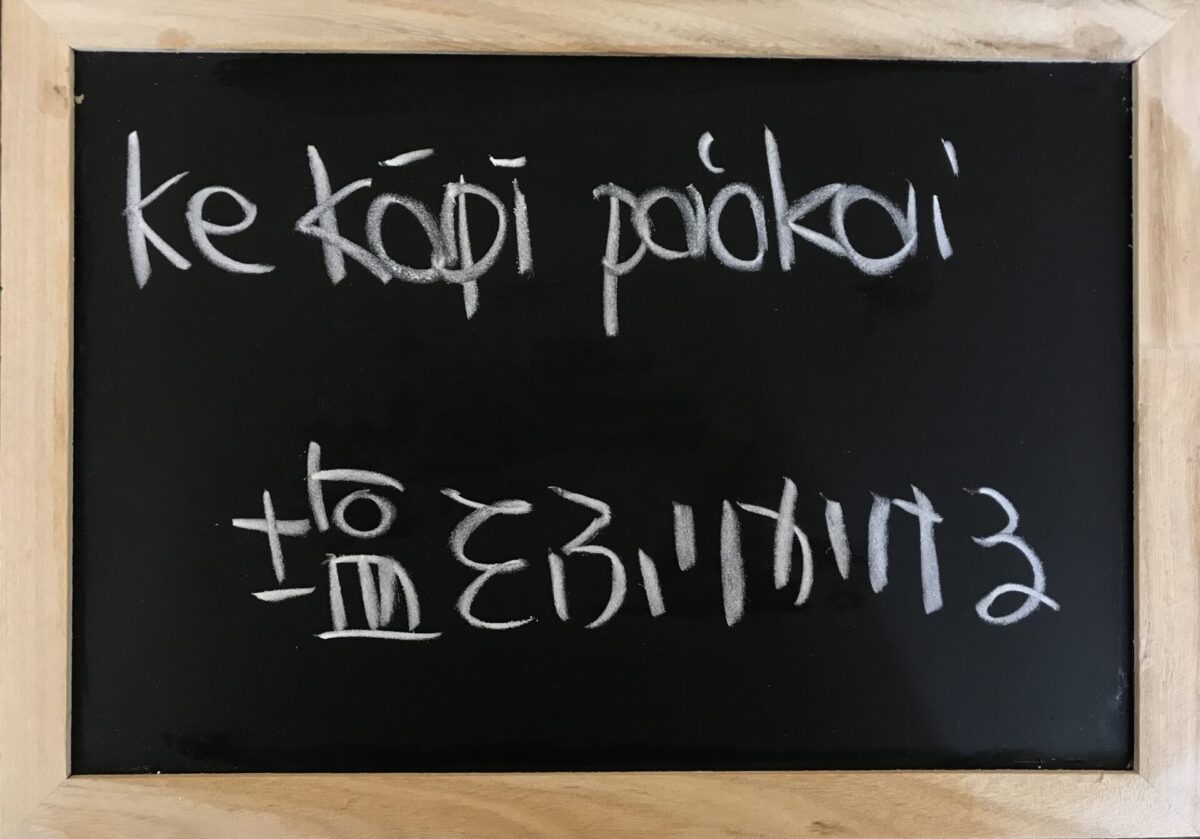 ke kāpī paʻakai
塩をふりかける